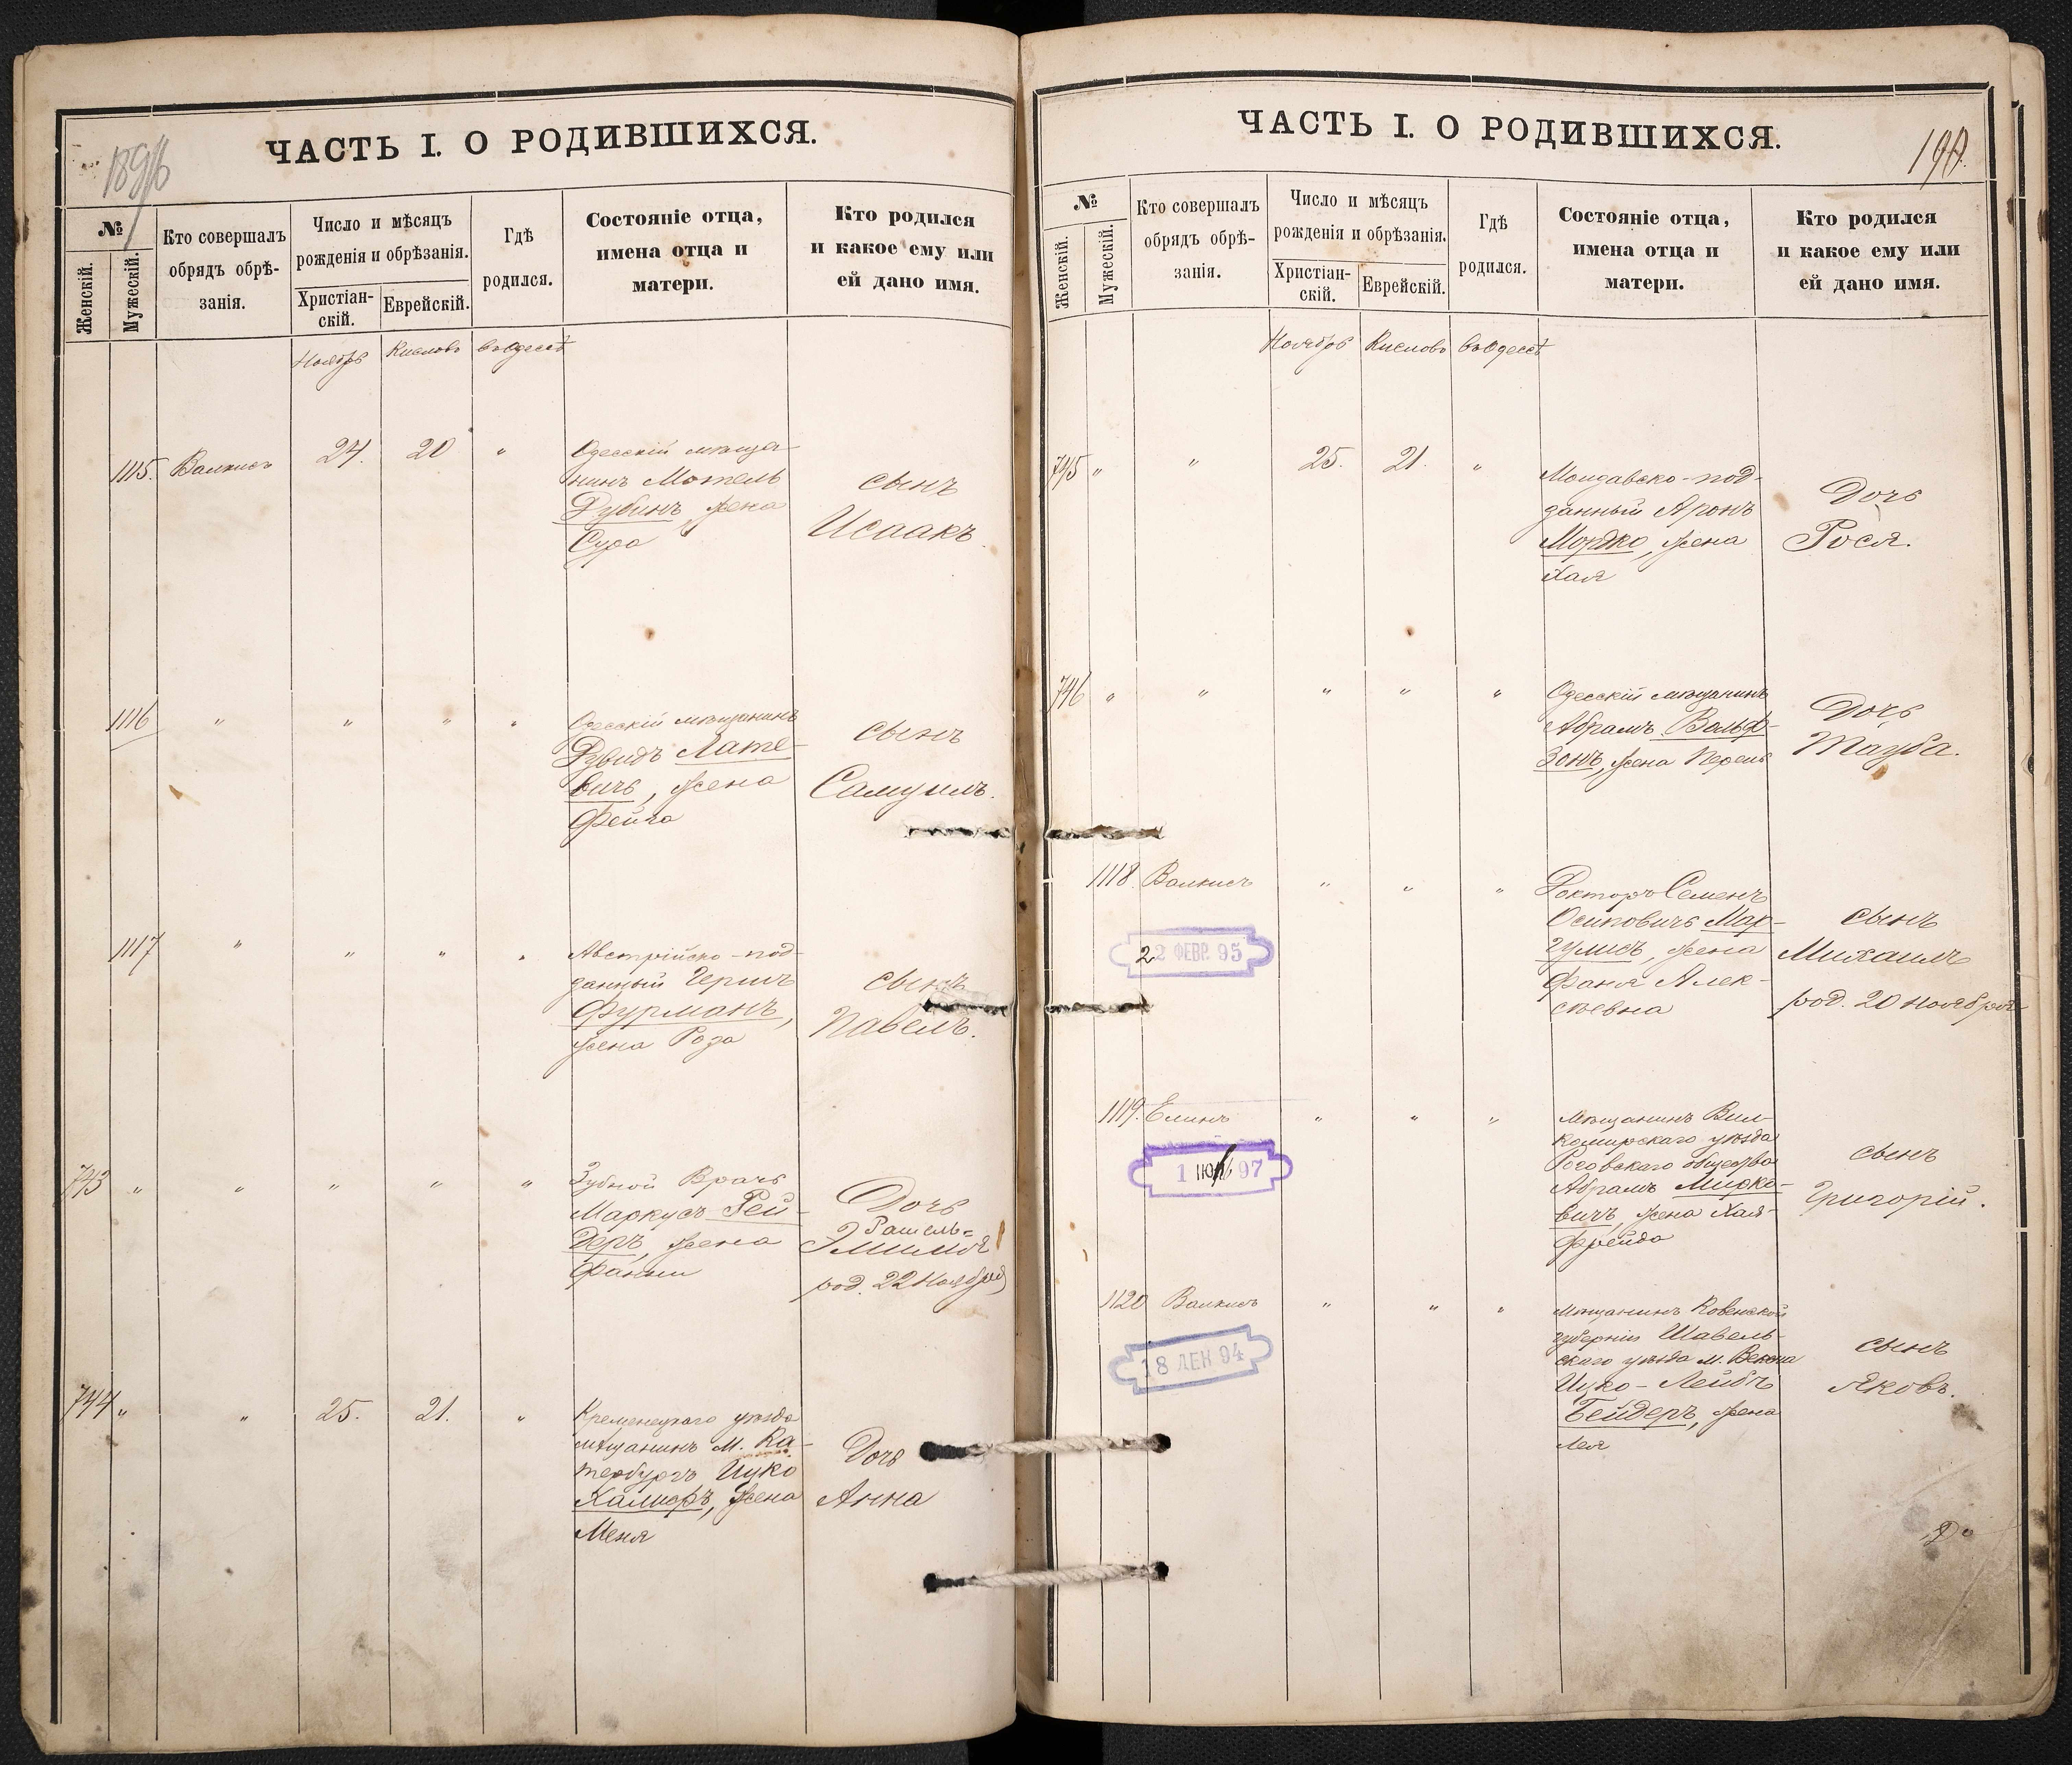 ЧАСТЬ I. О РОДИВШИХСЯ.
№
Женскій.
Мужескій.
Кто совершалъ
обрядъ обрѣ-
занія.
Число и мѣсяцъ
рожденія и обрѣзанія.
Христіан-
скій.
Еврейскій.
Гдѣ
родился.
Состояніе отца,
имена отца и
матери.
Кто родился
и какое ему или
ей дано имя.
Ноябрь Кислевъ въ Одессѣ
1115. Валкисъ 24. 20 "
Одесскій мѣща-
нинъ Мотель
Рубинъ, жена
Сура
сынъ
Исаакъ.
1116 " " " "
Одесскій мѣщанинъ
Лате-
вичъ, жена
Фейга
сынъ
Самуилъ.
1117 " " " "
Австрійско-под-
данный Гершъ
Фурманъ,
жена Роза
сынъ
Павелъ.
743 " " " " "
Зубной Врачъ
Маркусъ Рей-
деръ, жена
Фанни
Дочь
Рашель=
Эмилія
род. 22 Ноября
744 " " 25. 21. "
Кременецкаго уѣзда
мѣщанинъ м. Ка-
тербургъ Ицко
жена
Меня
Дочь
Анна
ЧАСТЬ I. О РОДИВШИХСЯ.
190.
№
Женскій.
Мужескій.
Кто совершалъ
обрядъ обрѣ-
занія.
Число и мѣсяцъ
рожденія и обрѣзанія.
Христіан-
скій.
Еврейскій.
Гдѣ
родился.
Состояніе отца,
имена отца и
матери.
Кто родился
и какое ему или
ей дано имя.
Ноябрь Кислевъ въ Одессѣ
745 " " 25. 21. "
Молдавско-под-
данный Аронъ
Мордко, жена
Хая
Дочь
Рося.
746 " " " " "
Одесскій мѣщанинъ
Абрамъ Вольф-
зонъ, жена Перель
Дочь
Тауба.
1118. Валкисъ " " "
22 ФЕВР. 95
Докторъ Семенъ
Осиповичъ Мар-
гулисъ, жена
Фаня Алек-
сѣевна
сынъ
Михаилъ
род. 20 Ноября
1119. Елинъ " " "
1 97
Мѣщанинъ Вил-
комирскаго уѣзда
Роговскаго общества
Абрамъ Мирке-
вичъ, жена Хая-
Фрейда
сынъ
Григорій.
1120 Валкисъ " " "
18 ДЕК 94
Мѣщанинъ Ковенской
губерніи Шавель-
скаго уѣзда м. Векшна
Ицко-Лейбъ
Бейдеръ, жена
Лея
сынъ
Яковъ.